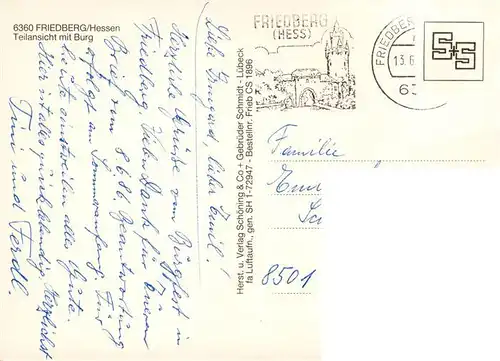 6360 FRIEDBERG/Hessen
Teilansicht mit Burg
Liebe Irmgard, lieber Emil!
Herzliche Grüße vom Burgfest in
Friedberg. Vielen Dank für Eueren
Brief vom 8.6.86. Beantwortung
erfolgt am Sommeranfang. Für
heute einstweilen alles Gute.
Hier ist alles quick lebendig. Herzlichst
Tini und Ferdl.
Herst. u. Verlag Schöning & Co + Gebrüder Schmidt - Lübeck
fa Luftaufn., gen. SH 1-72947 - Bestellnr. Frieb CS 1896
FRIEDBERG
(HESS)
FRIEDBE
13.6
63
S+S
Familie
8501